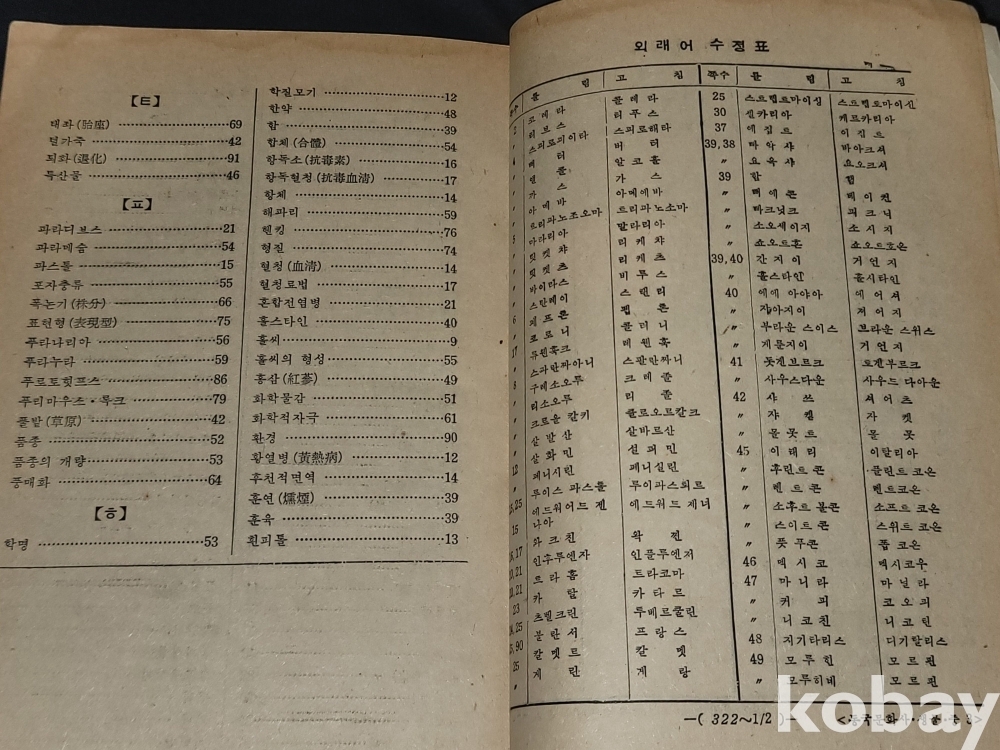 【ㅌ】
태좌(胎座)……69
털가죽……42
퇴화(退化)……91
특산물……46
【ㅍ】
파라디브스……21
파라메슘……54
파스퇼……15
포자충류……55
폭는기(株分)……66
표현형(表現型)……75
푸라나리아……56
푸라누라……59
푸르토헛프스……86
푸리마우츠·룩크……79
풀밭(草原)……42
품종……52
품종의 개량……53
풍매화……64
【ㅎ】
학명……53
학질모기……12
한약……48
함……39
합체(合體)……54
항독소(抗毒素)……16
항독혈청(抗毒血淸)……17
항체……14
해파리……59
헨킹……76
형질……74
혈청(血淸)……14
혈청료법……17
혼합전염병……21
홀스타인……40
홀씨……9
홀씨의 형성……55
홍삼(紅蔘)……49
화학물감……51
화학적자극……61
환경……90
황열병(黃熱病)……12
후천적면역……14
훈연(燻煙)……39
훈육……39
흰피톨……13
외래어 수정표
틀림 고침
코데라 콜레라
리브스 리푸스
스피로피이타 스피로해타
뻐터 버터
알콜 알코홀
까스 가스
아메바 아메에바
트리파노조오마 트리파노소마
마라리아 말라리아
릿켓챠 리케챠
릿켓츠 리케츠
바이라스 비루스
스탄레이 스탠리
페프톤 펩톤
코로니 콜러니
류웬훅크 레웬훅
스파란짜아니 스팔란짜니
구데소오루 크레졸
리소오루 리졸
크로올 칼키 클로오르칼크
살발산 살바르산
살화민 설퍼민
12 페니시린 페니실린
루이스 파스퇼 루이파스퇴르
에드워어드 젠나아 에드워드 제너
15 와크친 왁찐
16, 17 인후루엔자 인풀루엔저
20, 21 트라홈 트라코마
카달 카타르
23 츠벨크린 투베르쿨린
불란서 프랑스
칼멧트 칼멧
25 게란 게랑
쪽수 틀림 고침
25 스트렙트마이싱 스트렙토마이신
30 셀카리아 케르카리아
37 에짚트 이집트
39,38 마악샤 바아크셔
〃 요옥샤 요오크셔
39 함 햄
〃 뻬에콘 베이컨
〃 빠크닛크 피크닉
〃 소오세이지 소시지
〃 쇼오트혼 쇼오트호온
39,40 간지이 거언지
〃 홀스타인 홀시타인
40 에에아야아 에어셔
〃 자아지이 저어지
〃 부라운 스이스 브라운 스위스
〃 게룬지이 거언지
41 돗겐브르크 토겐부르크
〃 사우스다운 사우드 다아운
42 샤쓰 셔어츠
〃 쟈켙 자켓
〃 몰못트 몰못
45 이태리 이탈리아
〃 후린트콘 플린트코온
〃 덴트콘 덴트코온
〃 소후트 불콘 소프트 코온
〃 스이트콘 스위트 코온
〃 폿푸콘 폽 코온
46 멕시코 멕시코우
47 마니라 마닐라
〃 커피 코오피
〃 니코친 니코틴
48 지기타리스 디기탈리스
49 모루힌 모르핀
〃 모루히네 모르핀
—( 322~1/2 )—
<동국문화사·생물·중 3>
kobay